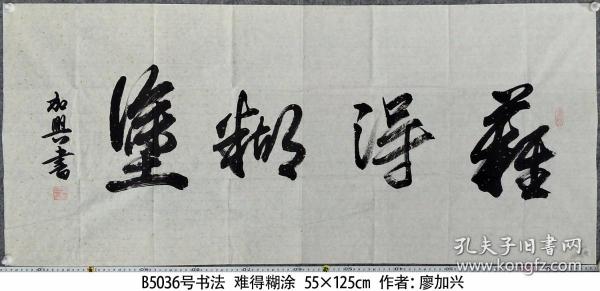 難得糊塗
加興書
孔夫子旧书网
www.kongfz.com
B5036号书法 难得糊涂 55×125cm 作者:廖加兴